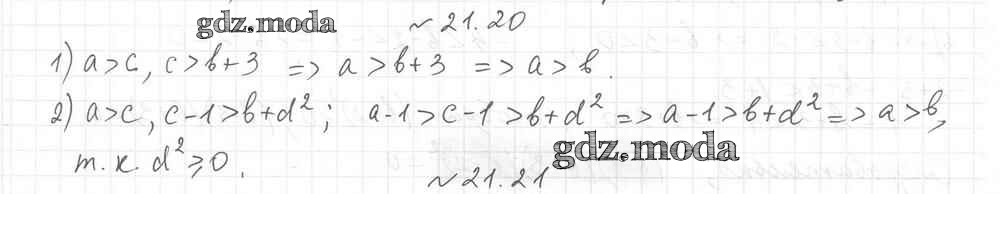 gdz.moda
~ 21.20
1) a>c, c>b+3 => a>b+3 => a>b.
2) a>c, c-1>b+d²; a-1>c-1>b+d² => a-1>b+d² => a>b,
gdz.moda
т.к. d²⩾0.
~21.21